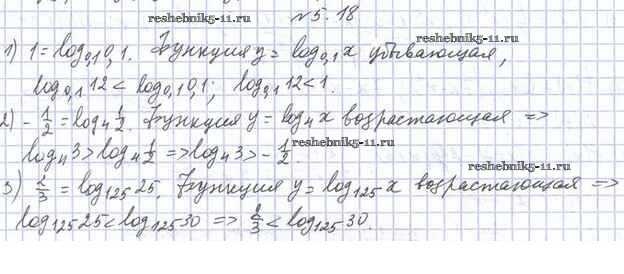 reshebnik5-11.ru
№5.18
reshebnik5-11.ru
1) 1 = log₀,₁0,1. Функция y = log₀,₁x убывающая,
log₀,₁12 < log₀,₁0,1; log₀,₁12 < 1.
reshebnik5-11.ru
2) -1/2 = log₄1/2. Функция y = log₄x возрастающая =>
log₄3 > log₄1/2 => log₄3 > -1/2.
reshebnik5-11.ru
3) 2/3 = log₁₂₅25. Функция y = log₁₂₅x возрастающая =>
log₁₂₅25 < log₁₂₅30 => 2/3 < log₁₂₅30.